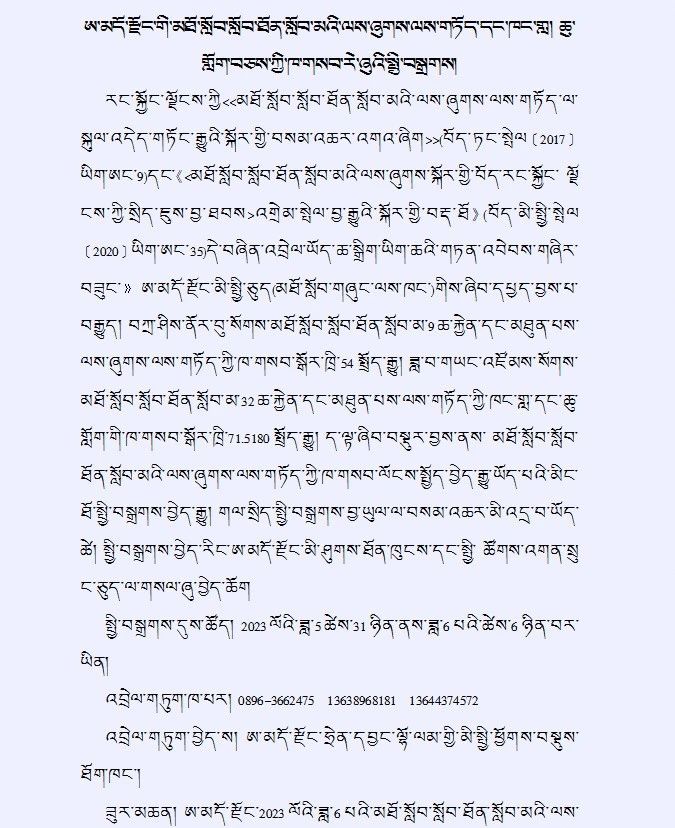 ཨ་མདོ་རྫོང་གི་མཐོ་སློབ་སློབ་ཐོན་སློབ་མའི་ལས་ཞུགས་ལས་གཏོད་དང་ཁང་གླ། ཆུ་
གློག་བཅས་ཀྱི་ཁ་གསབ་རེ་ཞུའི་སྤྱི་བསྒྲགས།
རང་སྐྱོང་ལྗོངས་ཀྱི<<མཐོ་སློབ་སློབ་ཐོན་སློབ་མའི་ལས་ཞུགས་ལས་གཏོད་ལ་
སྐུལ་འདེད་གཏོང་རྒྱུའི་སྐོར་གྱི་བསམ་འཆར་འགའ་ཞིག>>(བོད་ཏང་སྤེལ〔2017〕
ཡིག་ཨང་9)དང་《<མཐོ་སློབ་སློབ་ཐོན་སློབ་མའི་ལས་ཞུགས་སྐོར་གྱི་བོད་རང་སྐྱོང་ ལྗོ
ངས་ཀྱི་སྲིད་ཇུས་བྱ་ཐབས>འགྲེམ་སྤེལ་བྱ་རྒྱུའི་སྐོར་གྱི་བརྡ་ཐོ》(བོད་མི་སྤྱི་སྤེལ
〔2020〕ཡིག་ཨང་35)དེ་བཞིན་འབྲེལ་ཡོད་ཆ་སྒྲིག་ཡིག་ཆའི་གཏན་འབེབས་གཞིར་
བཟུང་》 ཨ་མདོ་རྫོང་མི་སྤྱི་ཅུད(མཐོ་སློབ་གཞུང་ལས་ཁང་)གིས་ཞིབ་དཔྱད་བྱས་པ་
བརྒྱུད། བཀྲ་ཤིས་ནོར་བུ་སོགས་མཐོ་སློབ་སློབ་ཐོན་སློབ་མ་9ཆ་རྐྱེན་དང་མཐུན་པས་
ལས་ཞུགས་ལས་གཏོད་ཀྱི་ཁ་གསབ་སྒོར་ཁྲི་54 སྤྲོད་རྒྱུ། ཟླ་བ་གཡང་འཛོམས་སོགས་
མཐོ་སློབ་སློབ་ཐོན་སློབ་མ་32ཆ་རྐྱེན་དང་མཐུན་པས་ལས་གཏོད་ཀྱི་ཁང་གླ་དང་ཆུ་
གློག་གི་ཁ་གསབ་སྒོར་ཁྲི་71.5180 སྤྲོད་རྒྱུ། ད་ལྟ་ཞིབ་བསྡུར་བྱས་ནས་ མཐོ་སློབ་སློབ་
ཐོན་སློབ་མའི་ལས་ཞུགས་ལས་གཏོད་ཀྱི་ཁ་གསབ་ལོངས་སྤྱོད་བྱེད་རྒྱུ་ཡོད་པའི་མིང་
ཐོ་སྤྱི་བསྒྲགས་བྱེད་རྒྱུ། གལ་སྲིད་སྤྱི་བསྒྲགས་བྱ་ཡུལ་ལ་བསམ་འཆར་མི་འདྲ་བ་ཡོད་
ཚེ། སྤྱི་བསྒྲགས་བྱེད་རིང་ཨ་མདོ་རྫོང་མི་ཤུགས་ཐོན་ཁུངས་དང་སྤྱི་ ཚོགས་འགན་སྲུ
ང་ཅུད་ལ་གསལ་ཞུ་བྱེད་ཆོག
སྤྱི་བསྒྲགས་དུས་ཚོད། 2023 ལོའི་ཟླ་5ཚེས་31 ཉིན་ནས་ཟླ་6 པའི་ཚེས་6 ཉིན་བར་
ཡིན།
འབྲེལ་གཏུག་ཁ་པར། 0896-3662475 13638968181 13644374572
འབྲེལ་གཏུག་བྱེད་ས། ཨ་མདོ་རྫོང་ཧྲེན་དབྱང་ལྷོ་ལམ་གྱི་མི་སྤྱི་ཕྱོགས་བསྡུས་
ཐོག་ཁང་།
ཟུར་མཆན། ཨ་མདོ་རྫོང་2023 ལོའི་ཟླ་6 པའི་མཐོ་སློབ་སློབ་ཐོན་སློབ་མའི་ལས་